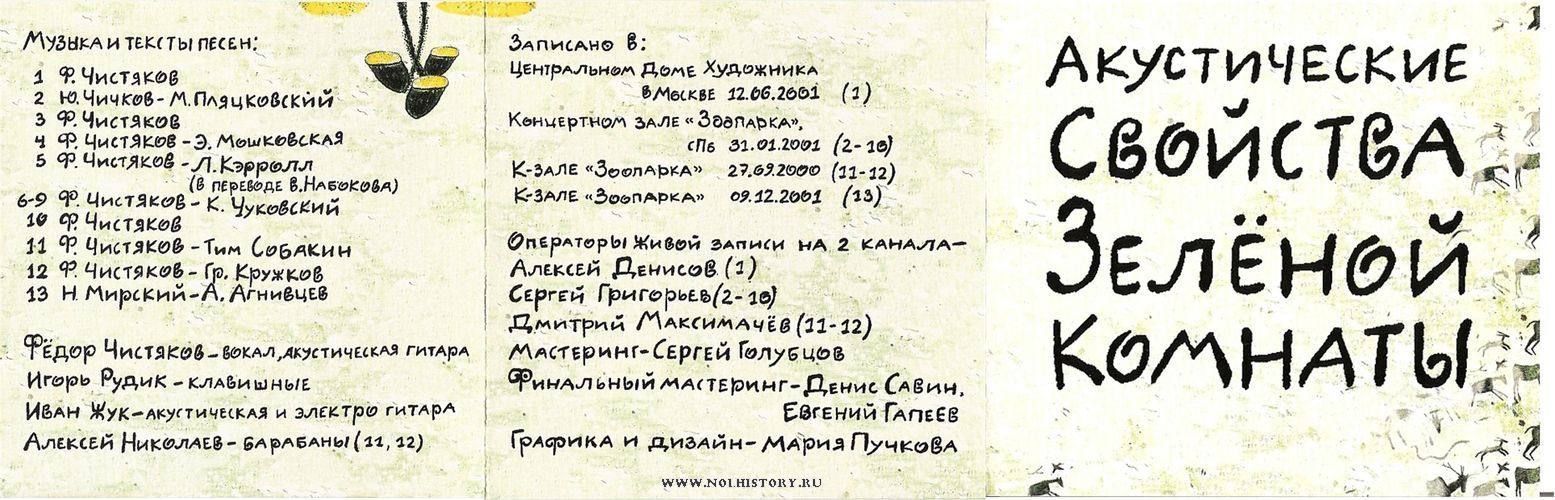 Музыка и тексты песен:
1 Ф. Чистяков
2 Ю. Чичков - М. Пляцковский
3 Ф. Чистяков
4 Ф. Чистяков - Э. Мошковская
5 Ф. Чистяков - Л. Кэрролл
(в переводе В. Набокова)
6-9 Ф. Чистяков - К. Чуковский
10 Ф. Чистяков
11 Ф. Чистяков - Тим Собакин
12 Ф. Чистяков - Гр. Кружков
13 Н. Мирский - А. Агнивцев
Фёдор Чистяков - вокал, акустическая гитара
Игорь Рудик - клавишные
Иван Жук - акустическая и электро гитара
Алексей Николаев - барабаны (11, 12)
Записано в:
Центральном Доме Художника
в Москве 12.06.2001 (1)
Концертном зале «Зоопарка»,
СПб 31.01.2001 (2-10)
К-зале «Зоопарка» 27.09.2000 (11-12)
К-зале «Зоопарка» 09.12.2001 (13)
Операторы живой записи на 2 канала -
Алексей Денисов (1)
Сергей Григорьев (2-10)
Дмитрий Максимачёв (11-12)
Мастеринг - Сергей Голубцов
Финальный мастеринг - Денис Савин,
Евгений Гапеев
Графика и дизайн - Мария Пучкова
WWW.NOLHISTORY.RU
Акустические
Свойства
Зелёной
Комнаты